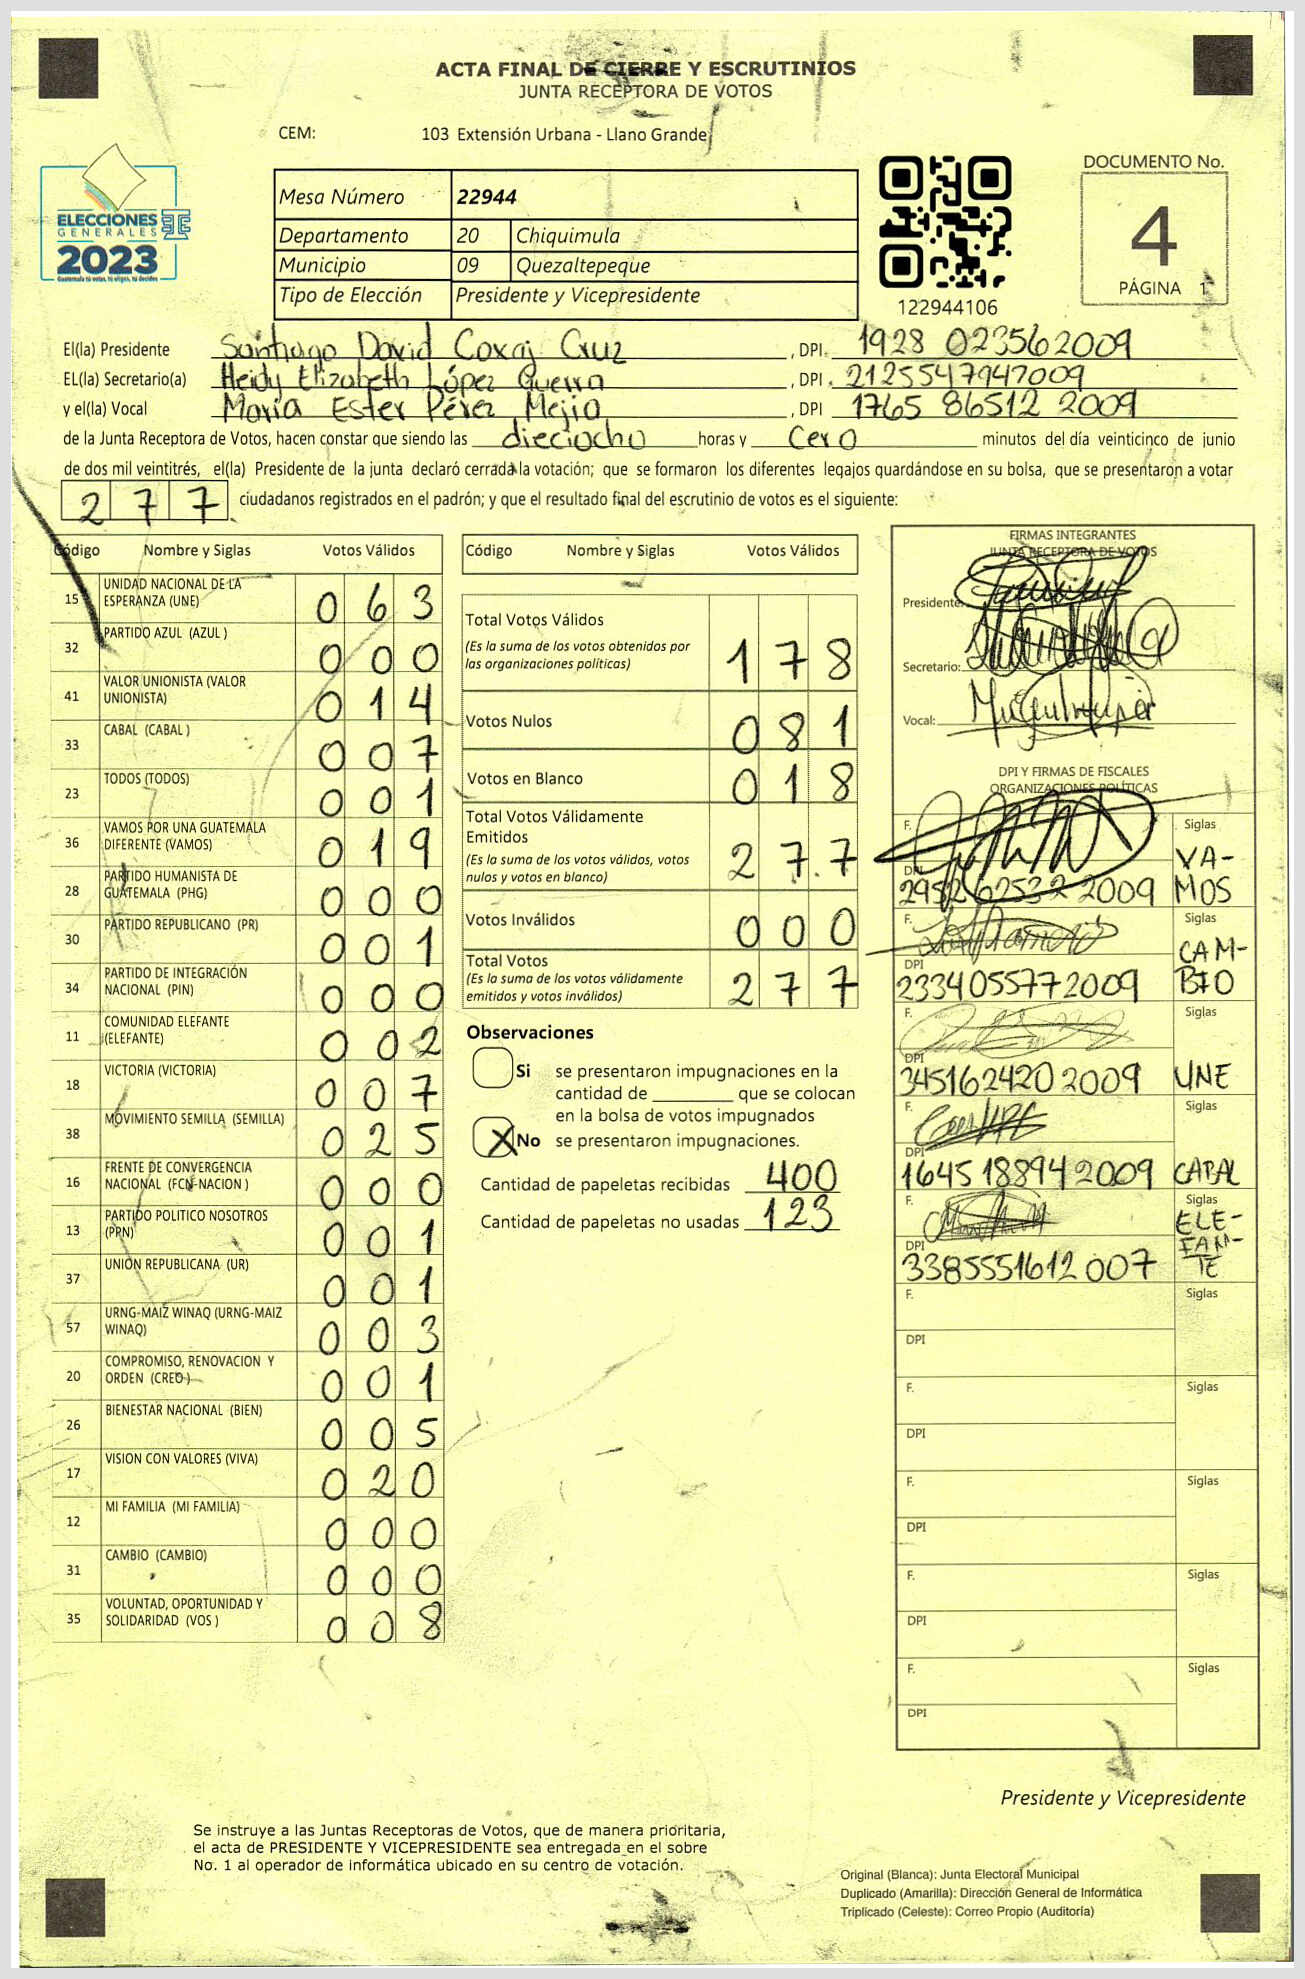 ACTA FINAL DE CIERRE Y ESCRUTINIOS
JUNTA RECEPTORA DE VOTOS
CEM: 103 Extensión Urbana - Llano Grande
ELECCIONES
GENERALES
2023
Mesa Número 22944
Departamento 20 Chiquimula
Municipio 09 Quezaltepeque
Tipo de Elección Presidente y Vicepresidente
122944106
DOCUMENTO No.
4
PÁGINA 1
El(la) Presidente Santiago David Coxaj Cruz, DPI. 1928 023562009
EL(la) Secretario(a) Heidy Elizabeth López Guerra, DPI. 2125547947009
y el(la) Vocal María Ester Pérez Mejia, DPI 1765 86512 2009
de la Junta Receptora de Votos, hacen constar que siendo las dieciocho horas y cero minutos del día veinticinco de junio
de dos mil veintitrés, el(la) Presidente de la junta declaró cerrada la votación; que se formaron los diferentes legajos quardándose en su bolsa, que se presentaron a votar
277 ciudadanos registrados en el padrón; y que el resultado final del escrutinio de votos es el siguiente:
Código Nombre y Siglas Votos Válidos
15 UNIDAD NACIONAL DE LA ESPERANZA (UNE) 063
32 PARTIDO AZUL (AZUL ) 000
41 VALOR UNIONISTA (VALOR UNIONISTA) 014
33 CABAL (CABAL ) 007
23 TODOS (TODOS) 001
36 VAMOS POR UNA GUATEMALA DIFERENTE (VAMOS) 019
28 PARTIDO HUMANISTA DE GUATEMALA (PHG) 000
30 PARTIDO REPUBLICANO (PR) 001
34 PARTIDO DE INTEGRACIÓN NACIONAL (PIN) 000
11 COMUNIDAD ELEFANTE (ELEFANTE) 002
18 VICTORIA (VICTORIA) 007
38 MOVIMIENTO SEMILLA (SEMILLA) 025
16 FRENTE DE CONVERGENCIA NACIONAL (FCN-NACION ) 000
13 PARTIDO POLITICO NOSOTROS (PPN) 001
37 UNION REPUBLICANA (UR) 001
57 URNG-MAIZ WINAQ (URNG-MAIZ WINAQ) 003
20 COMPROMISO, RENOVACION Y ORDEN (CREO ) 001
26 BIENESTAR NACIONAL (BIEN) 005
17 VISION CON VALORES (VIVA) 020
12 MI FAMILIA (MI FAMILIA) 000
31 CAMBIO (CAMBIO) 000
35 VOLUNTAD, OPORTUNIDAD Y SOLIDARIDAD (VOS ) 008
Código Nombre y Siglas Votos Válidos
Total Votos Válidos 178
(Es la suma de los votos obtenidos por
las organizaciones políticas)
Votos Nulos 081
Votos en Blanco 018
Total Votos Válidamente
Emitidos 277
(Es la suma de los votos válidos, votos
nulos y votos en blanco)
Votos Inválidos 000
Total Votos 277
(Es la suma de los votos válidamente
emitidos y votos inválidos)
Observaciones
Si se presentaron impugnaciones en la
cantidad de ________ que se colocan
en la bolsa de votos impugnados
X No se presentaron impugnaciones.
Cantidad de papeletas recibidas 400
Cantidad de papeletas no usadas 123
FIRMAS INTEGRANTES
JUNTA RECEPTORA DE VOTOS
Presidente:
Secretario:
Vocal:
DPI Y FIRMAS DE FISCALES
ORGANIZACIONES POLÍTICAS
F. Siglas
DPI 2952 62532 2009 VA-MOS
F. Siglas
DPI 2334055772009 CAM-BIO
F. Siglas
DPI 3451624202009 UNE
F. Siglas
DPI 1645 18894 2009 CABAL
F. Siglas
DPI 3385551612007 ELE-FAN-TE
F. Siglas
DPI
F. Siglas
DPI
F. Siglas
DPI
F. Siglas
DPI
F. Siglas
DPI
Presidente y Vicepresidente
Se instruye a las Juntas Receptoras de Votos, que de manera prioritaria,
el acta de PRESIDENTE Y VICEPRESIDENTE sea entregada en el sobre
No. 1 al operador de informática ubicado en su centro de votación.
Original (Blanca): Junta Electoral Municipal
Duplicado (Amarilla): Dirección General de Informática
Triplicado (Celeste): Correo Propio (Auditoría)